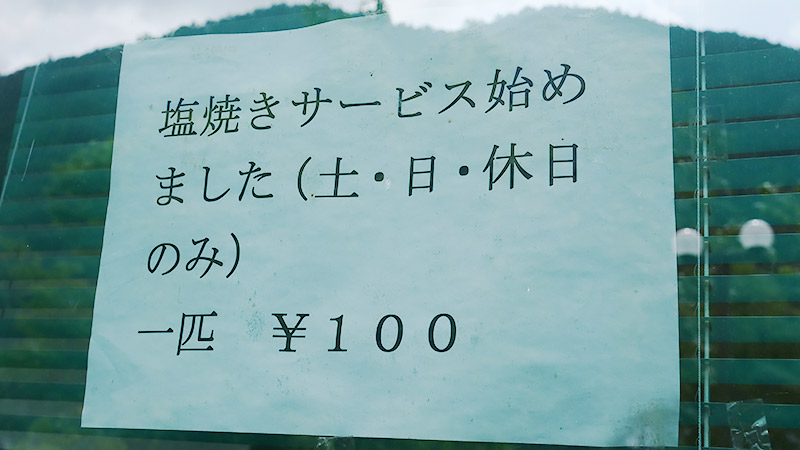 塩焼きサービス始め
ました(土・日・休日
のみ)
一匹　￥１００